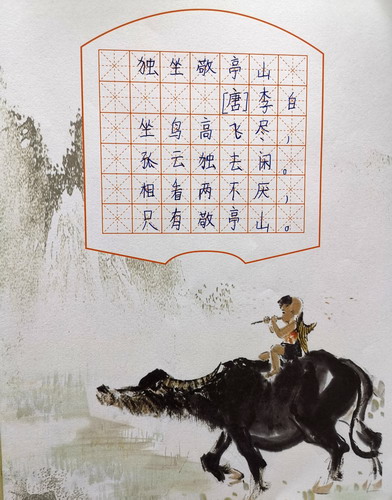 独坐敬亭山
[唐]李白
坐鸟高飞尽，
张云独去闲。
相看两不厌，
只有敬亭山。